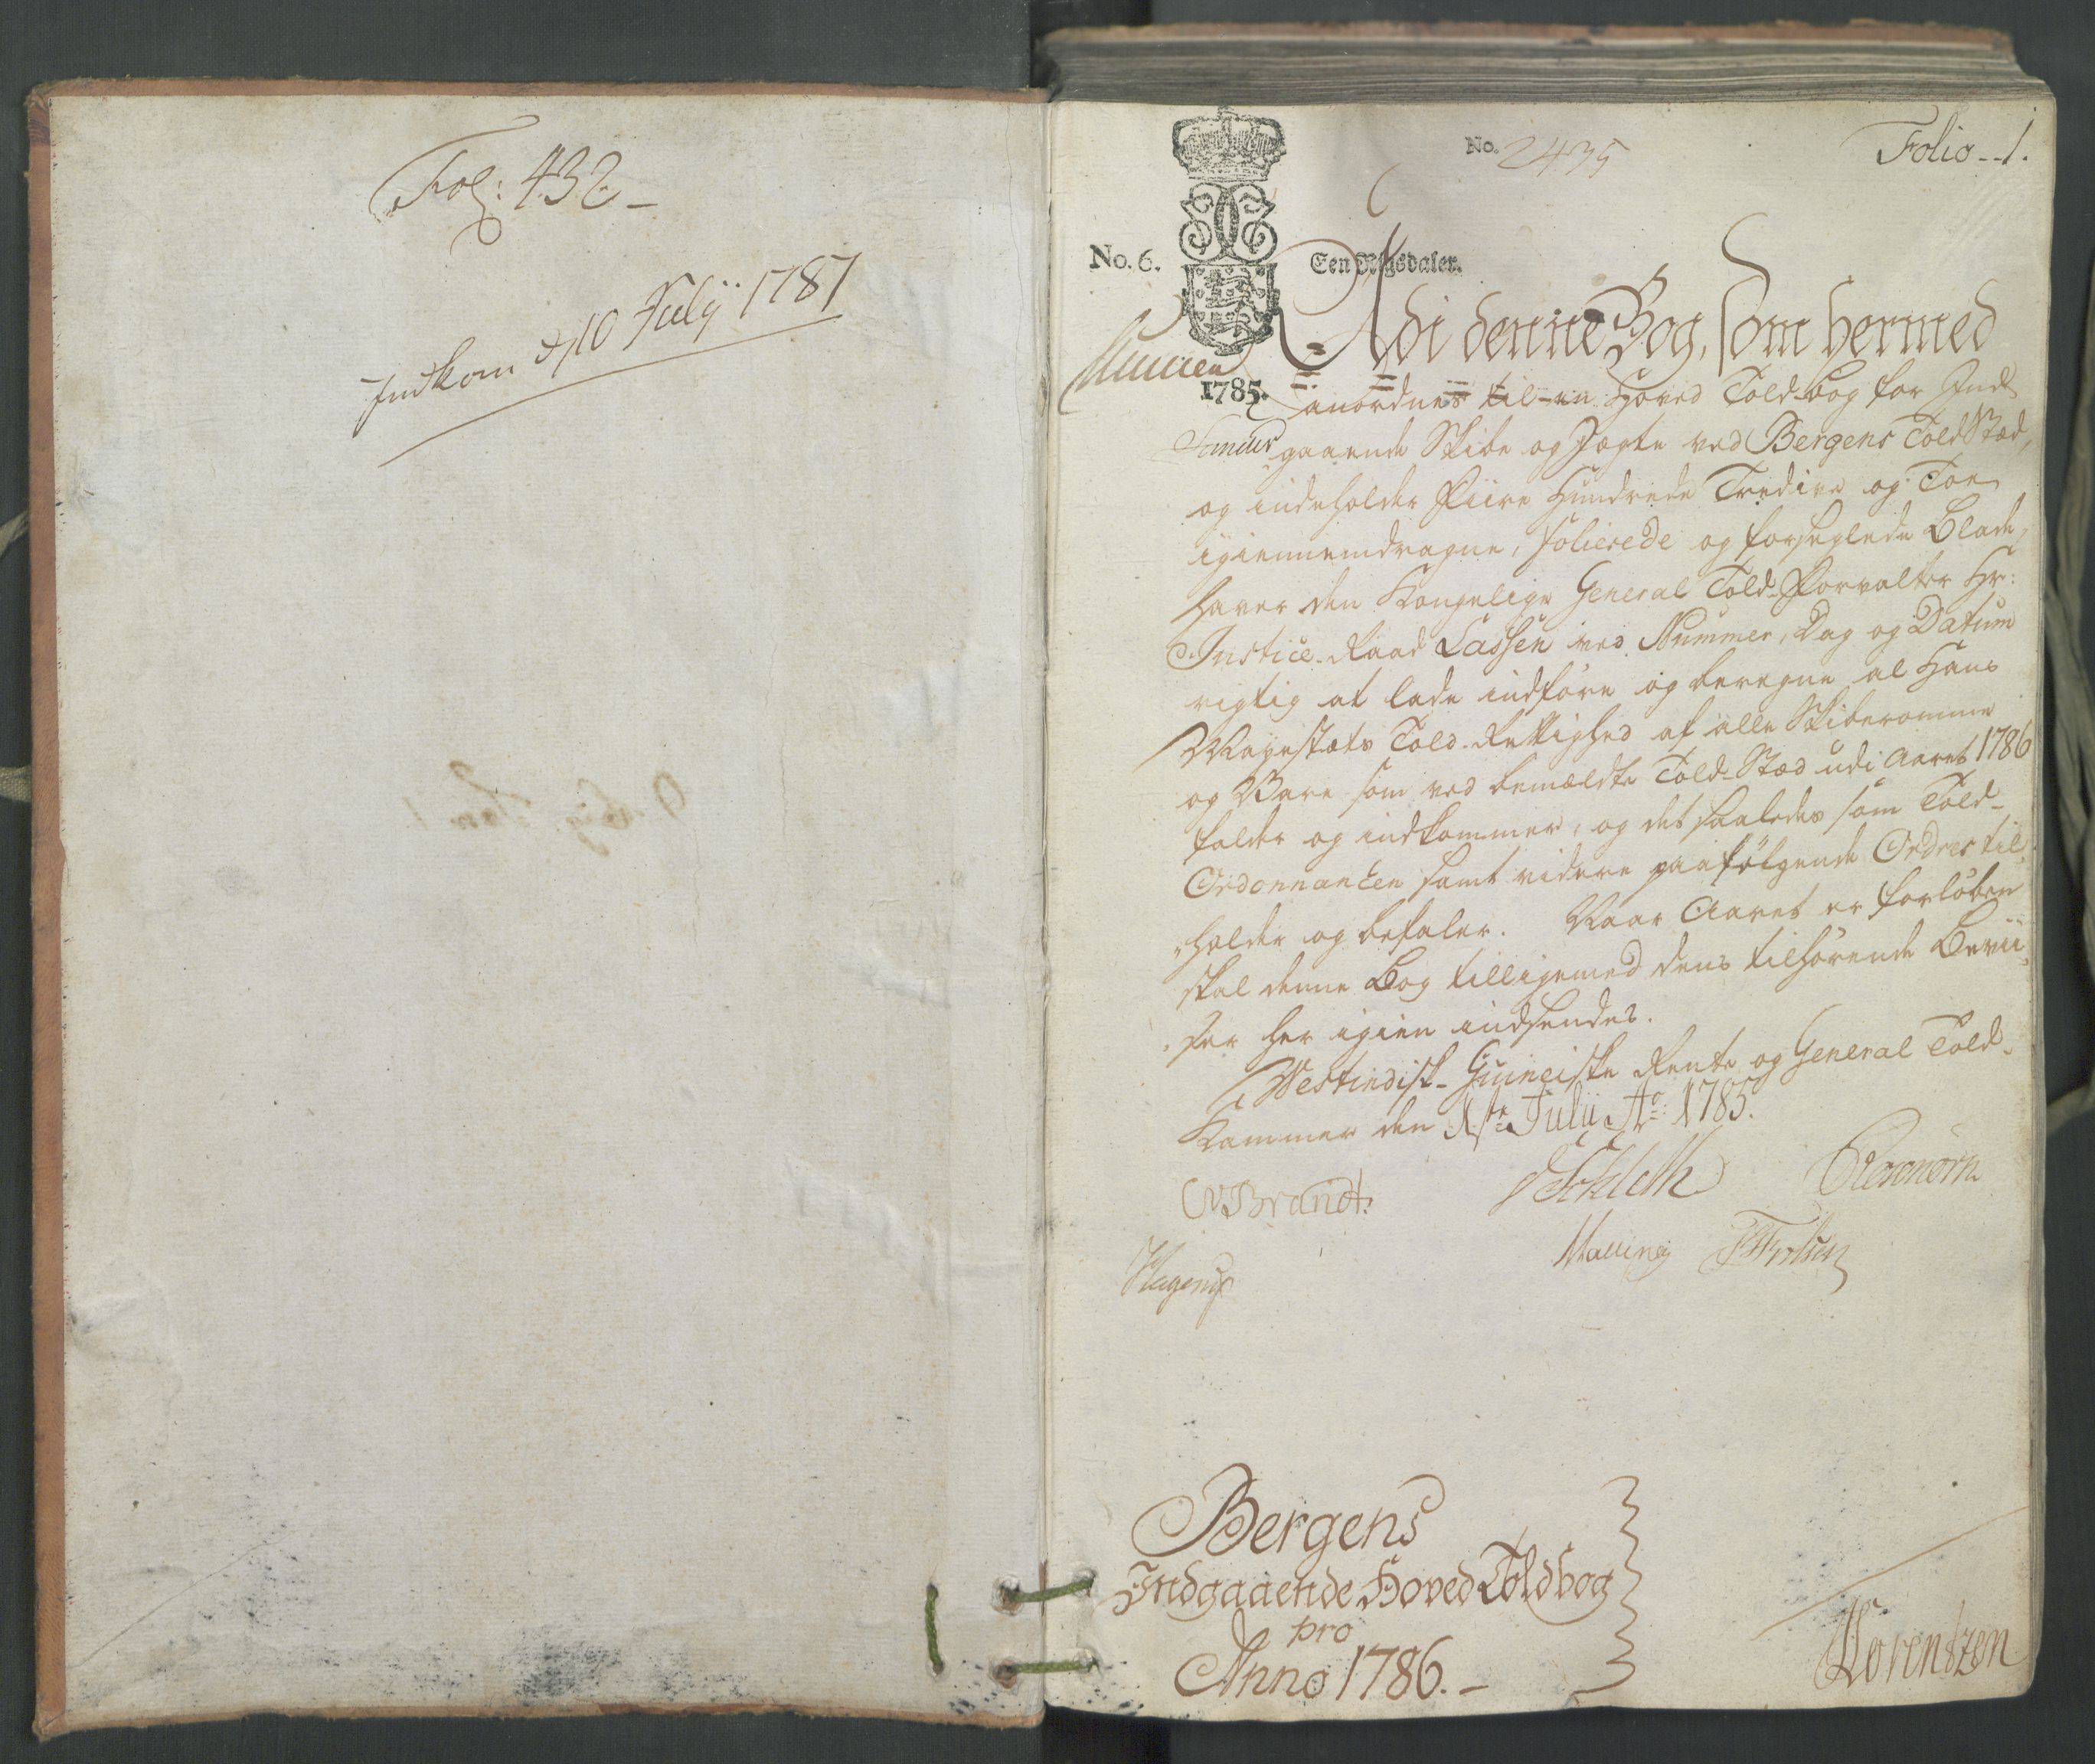 Fol: 432 –
Indkom d 10 Julÿ 1787
No. 2435
Folio - - 1.
No. 6.
Een Rigsdaler.
1785.
Udi denne Bog, som hermed
anordnes til en Hoved Told-bog for Ind-
gaaende Skibe og Jægte ved Bergens Told Stæd,
og indeholder Fiire Hundrede Tredive og Toe
igiennemdragne, folierede og forseglede Blade,
haver den Kongelige General Told-Forvalter Hr:
Justice-Raad Lassen ved Nummer, Dag og Datum
rigtig at lade indføre og beregne al Hans
Mayestæts Told-Rettighed af alle Skiberomme
og Vare som ved bemældte Told-Stæd udi Aaret 1786
falder og indkommer, og det saaledes som Told-
Ordonnancen samt videre paafølgende Ordres til-
holder og befaler. Naar Aaret er forløben
skal denne Bog tilligemed dens tilhørende Bevii-
ser her igien indsendes.
Westindisk-Guineiske Rente og General Told-
Kammer den 1ste Julii Ao 1785.
Brandt.
Schleth
Hagerup
Malling
Bergens
Indgaaende Hoved Toldbog
pro
Anno 1786. –
Lorentzen